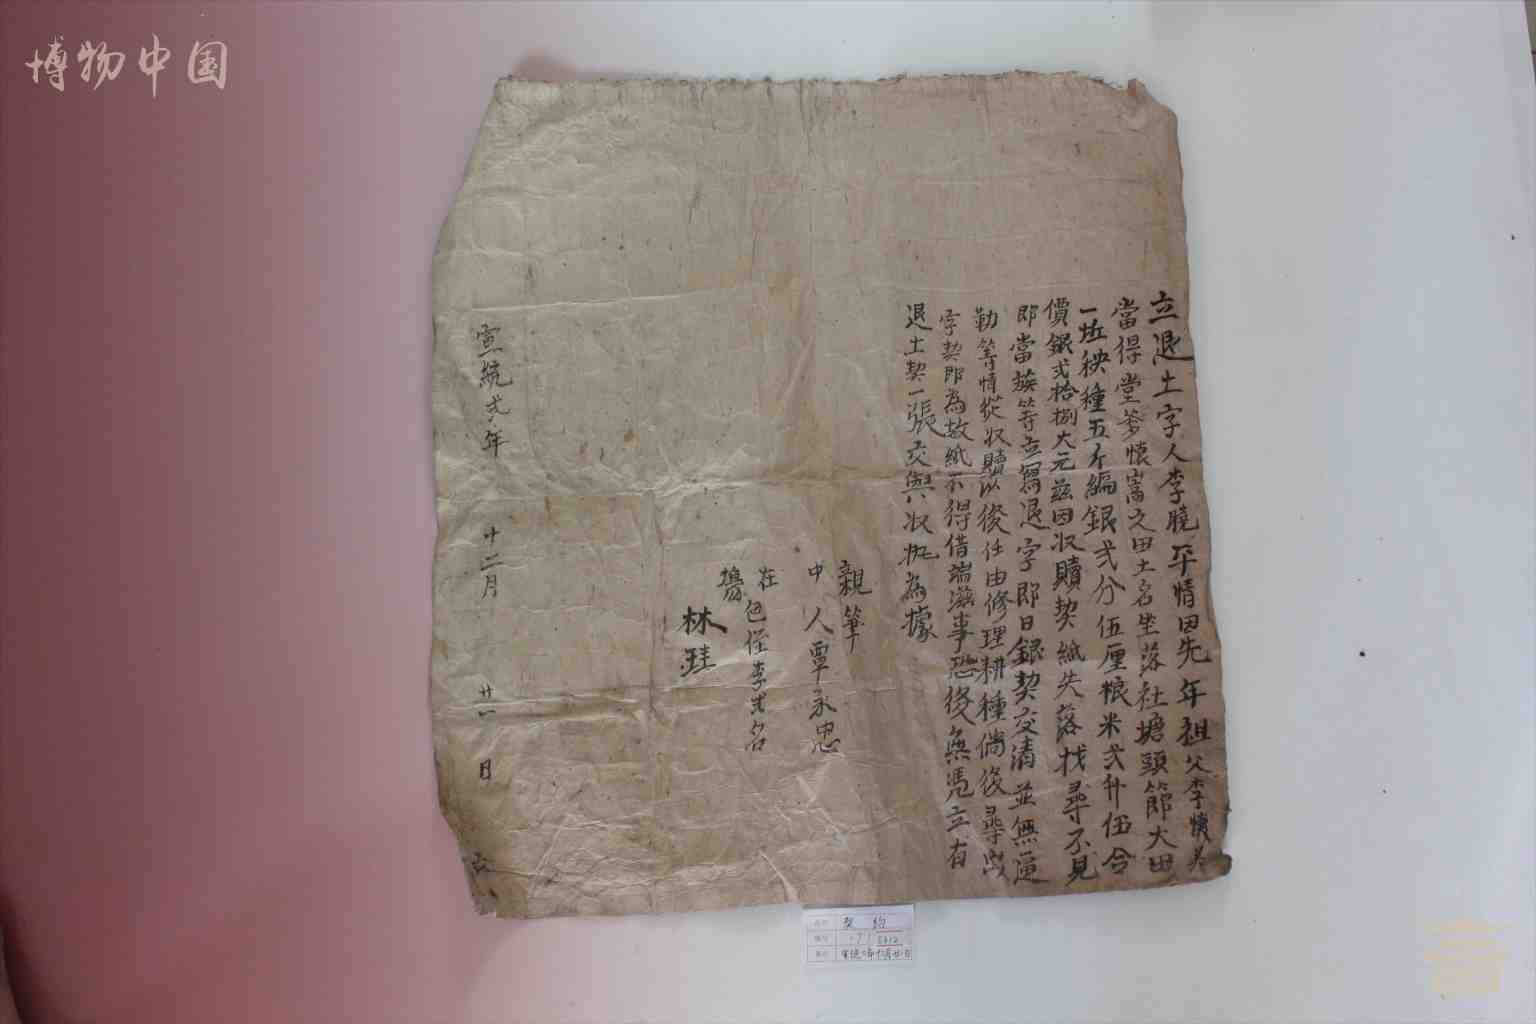 博物中国
立退土字人李曉平情因先年祖父李懷美
當得堂爹懷富之田土名坐落社塘頭節大田
一坵秧種五斤編銀弍分伍厘粮米弍升伍合
價銀弍拾捌大元茲因収贖契紙失落找尋不見
即當族等立寫退字即日銀契交清並無逼
勒等情從収贖以後任由修理耕種倘後尋出
字契即為故紙不得借端滋事恐後無凭立有
退土契一張交與収执為據
親筆
中人覃承忠
在 包侄李弍名
場
林 
宣統弍年 十二月 廿一日 立
契約